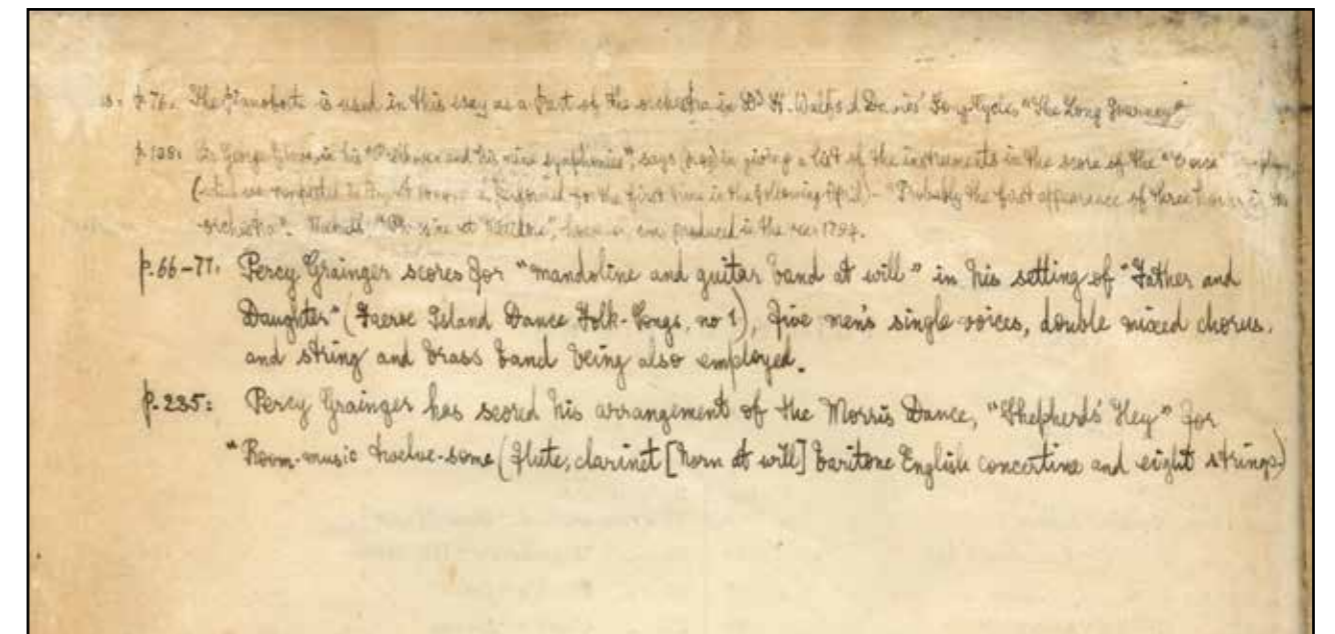 p.76. The Pianoforte is used in this way as a part of the orchestra in Dr H. Walford Davies' Song Cycle, "The Long Journey"
p.138: Sir George Grove, in his "Beethoven and his nine symphonies", says in giving a list of the instruments in the score of the "
performed for the first time in the following April) - "Probably the first appearance of three horns in the
orchestra". Handel, however, produced in the year 1784.
p.66-77. Percy Grainger scores for "mandoline and guitar band at will" in his setting of "Father and
Daughter" (Faeroe Island Dance Folk-Songs, no 1), five men's single voices, double mixed chorus,
and string and brass band being also employed.
p.235: Percy Grainger has scored his arrangement of the Morris Dance, "Shepherds' Hey" for
"Room-music twelve-some (flute, clarinet [horn at will] baritone English concertina and eight strings)